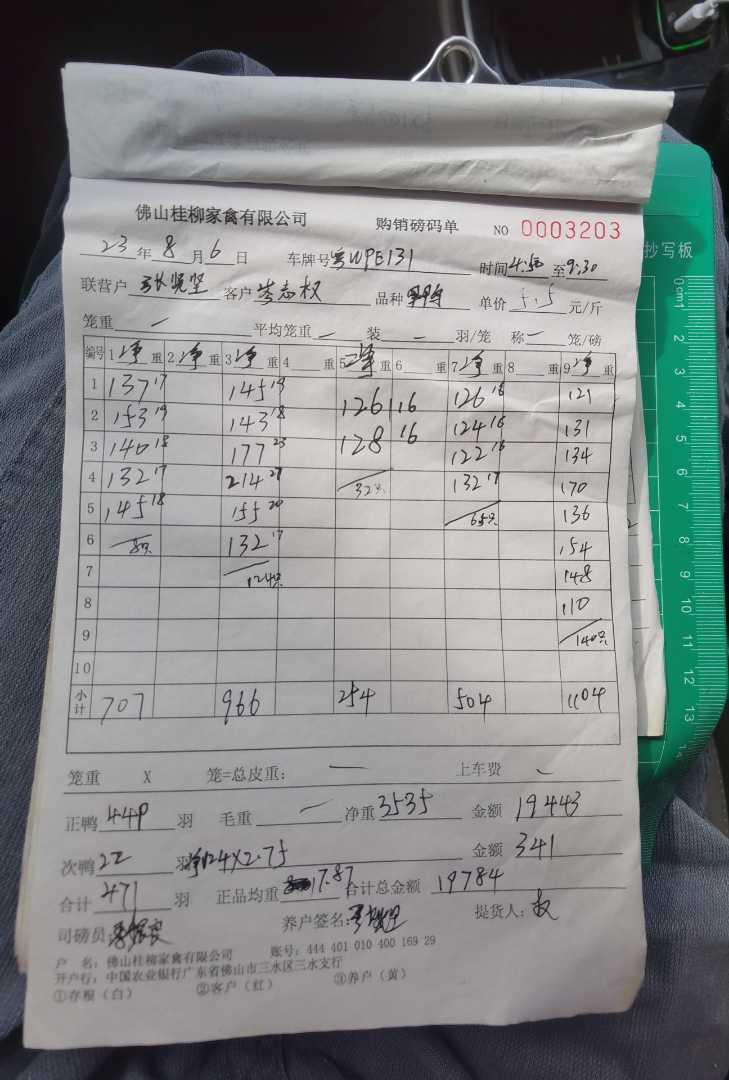 佛山桂柳家禽有限公司 购销磅码单 NO 0003203
23 年 8 月 6 日 车牌号 粤WPE131 时间 4:50 至 9:30
抄写板
联营户 客户 岑志权 品种 单价 5.5 元/斤
笼重 — 平均笼重 — 装 — 羽/笼 称 — 笼/磅
编号 1 净 重 2 净 重 3 净 重 4 重 5 净 重 6 重 7 净 重 8 重 9 净 重
1 137 17 145 19 126 16 126 16 121
2 153 19 143 18 128 16 124 16 131
3 140 18 177 23 122 16 134
4 132 17 214 27 32只 132 17 170
5 145 18 155 20 65只 136
6 89只 132 17 154
7 124只 148
8 110
9 140只
10
小计 707 966 254 504 1104
笼重 X 笼=总皮重: — 上车费 —
正鸭 449 羽 毛重 — 净重 3535 金额 19443
次鸭 22 羽 净124X2.75 金额 341
合计 471 羽 正品均重 7.87 合计总金额 19784
司磅员: 养户签名: 提货人: 权
户 名: 佛山桂柳家禽有限公司 账号: 444 401 010 400 169 29
开户行: 中国农业银行广东省佛山市三水区三水支行
①存根（白） ②客户（红） ③养户（黄）
0cm 1 2 3 4 5 6 7 8 9 10 11 12 13 14